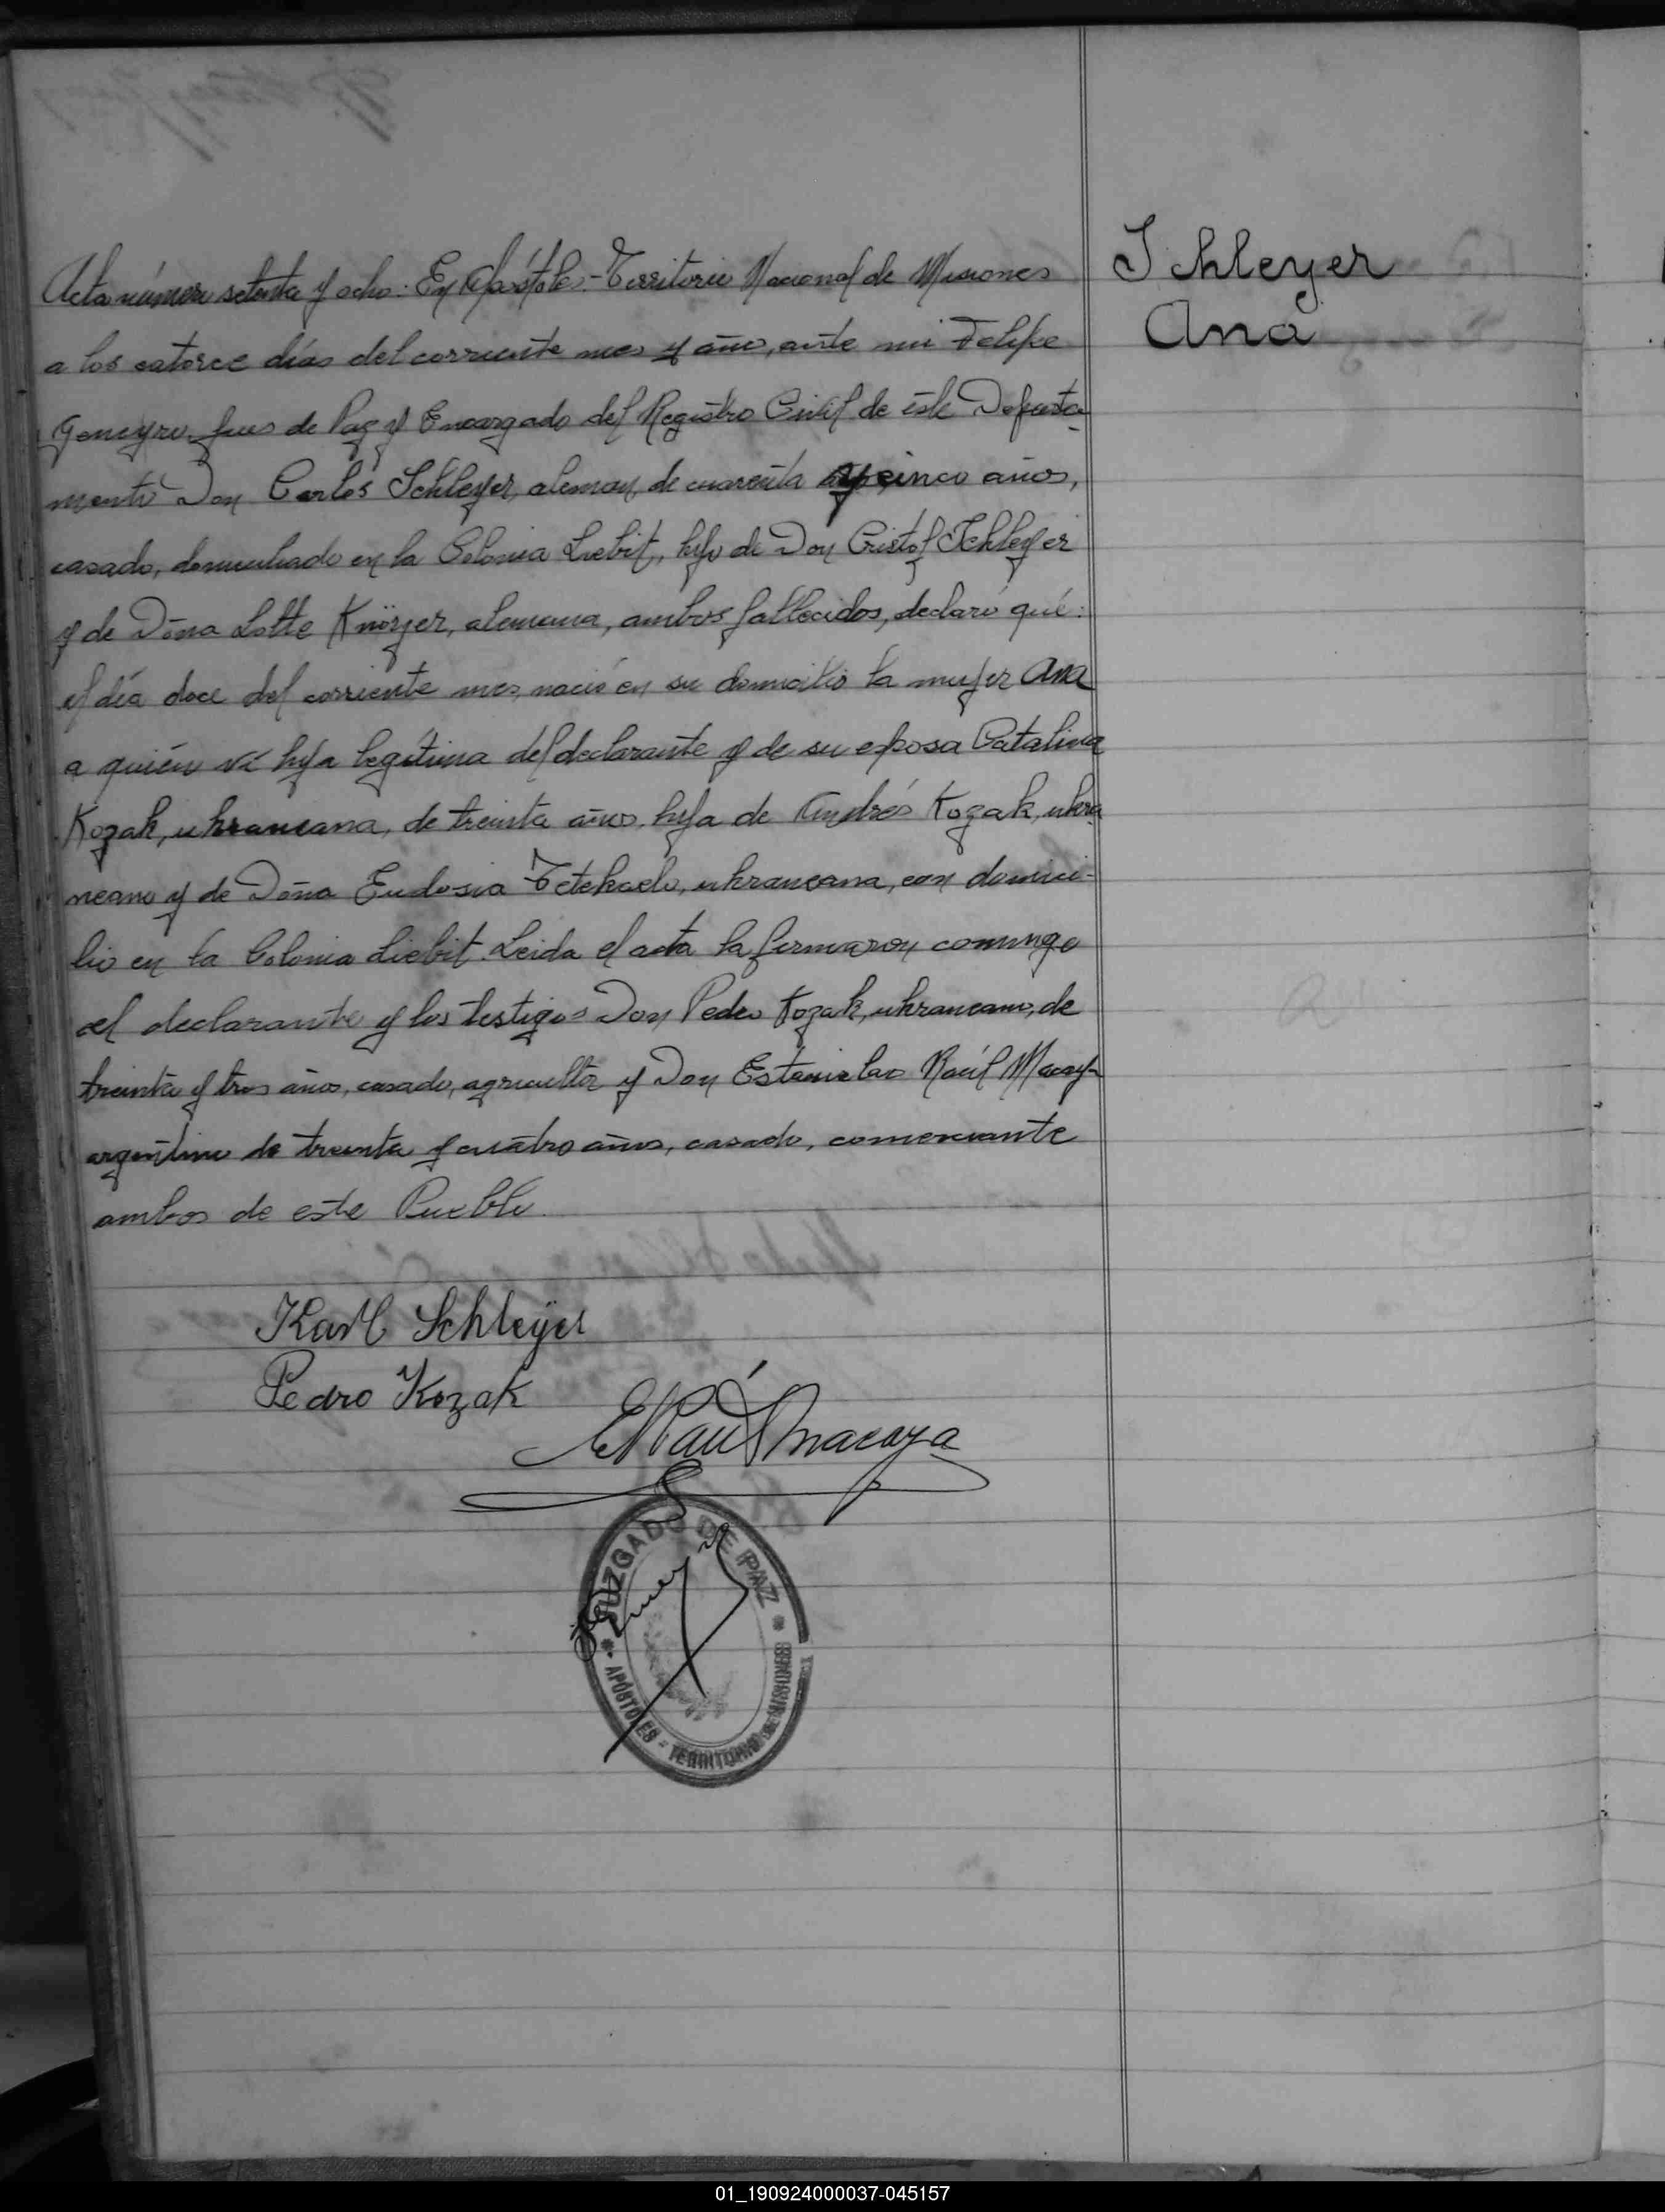 Schleyer
Ana
Acta número setenta y ocho: En Apóstoles - Territorio Nacional de Misiones
a los catorce días del corriente mes y año, ante mi Felipe
Geneyro Jues de Paz y Encargado del Registro Civil de éste Departa-
mento Don Carlos Schleyer, aleman, de cuarenta y cinco años,
casado, domiciliado en la Colonia Liebit, hijo de Don Cristof Schleyer
y de Doña Lotte Knörjer, alemana, ambos fallecidos, declaró qué:
el día doce del corriente mes, nació en su domicilio la mujer Ana
a quién ví hija legítima del declarante y de su esposa Catalina
Kozak, ukraneana, de treinta años, hija de Andrés Kozak, ukra
neano y de Doña Eudosia ukraneana, con domici-
lio en la Colonia Liebit. Leida el acta la firmaron conmigo
el declarante y los testigos Don Pedro Kozak, ukraneano, de
treinta y tres años, casado, agricultor y Don Estanislao Raúl Macaya
argentino de treinta y cuatro años, casado, comerciante
ambos de este Pueblo.
Karl Schleyer
Pedro Kozak
E Raúl Macaya
JUZGADO DE PAZ
APÓSTOLES - TERRITORIO DE MISIONES
01_190924000037-045157